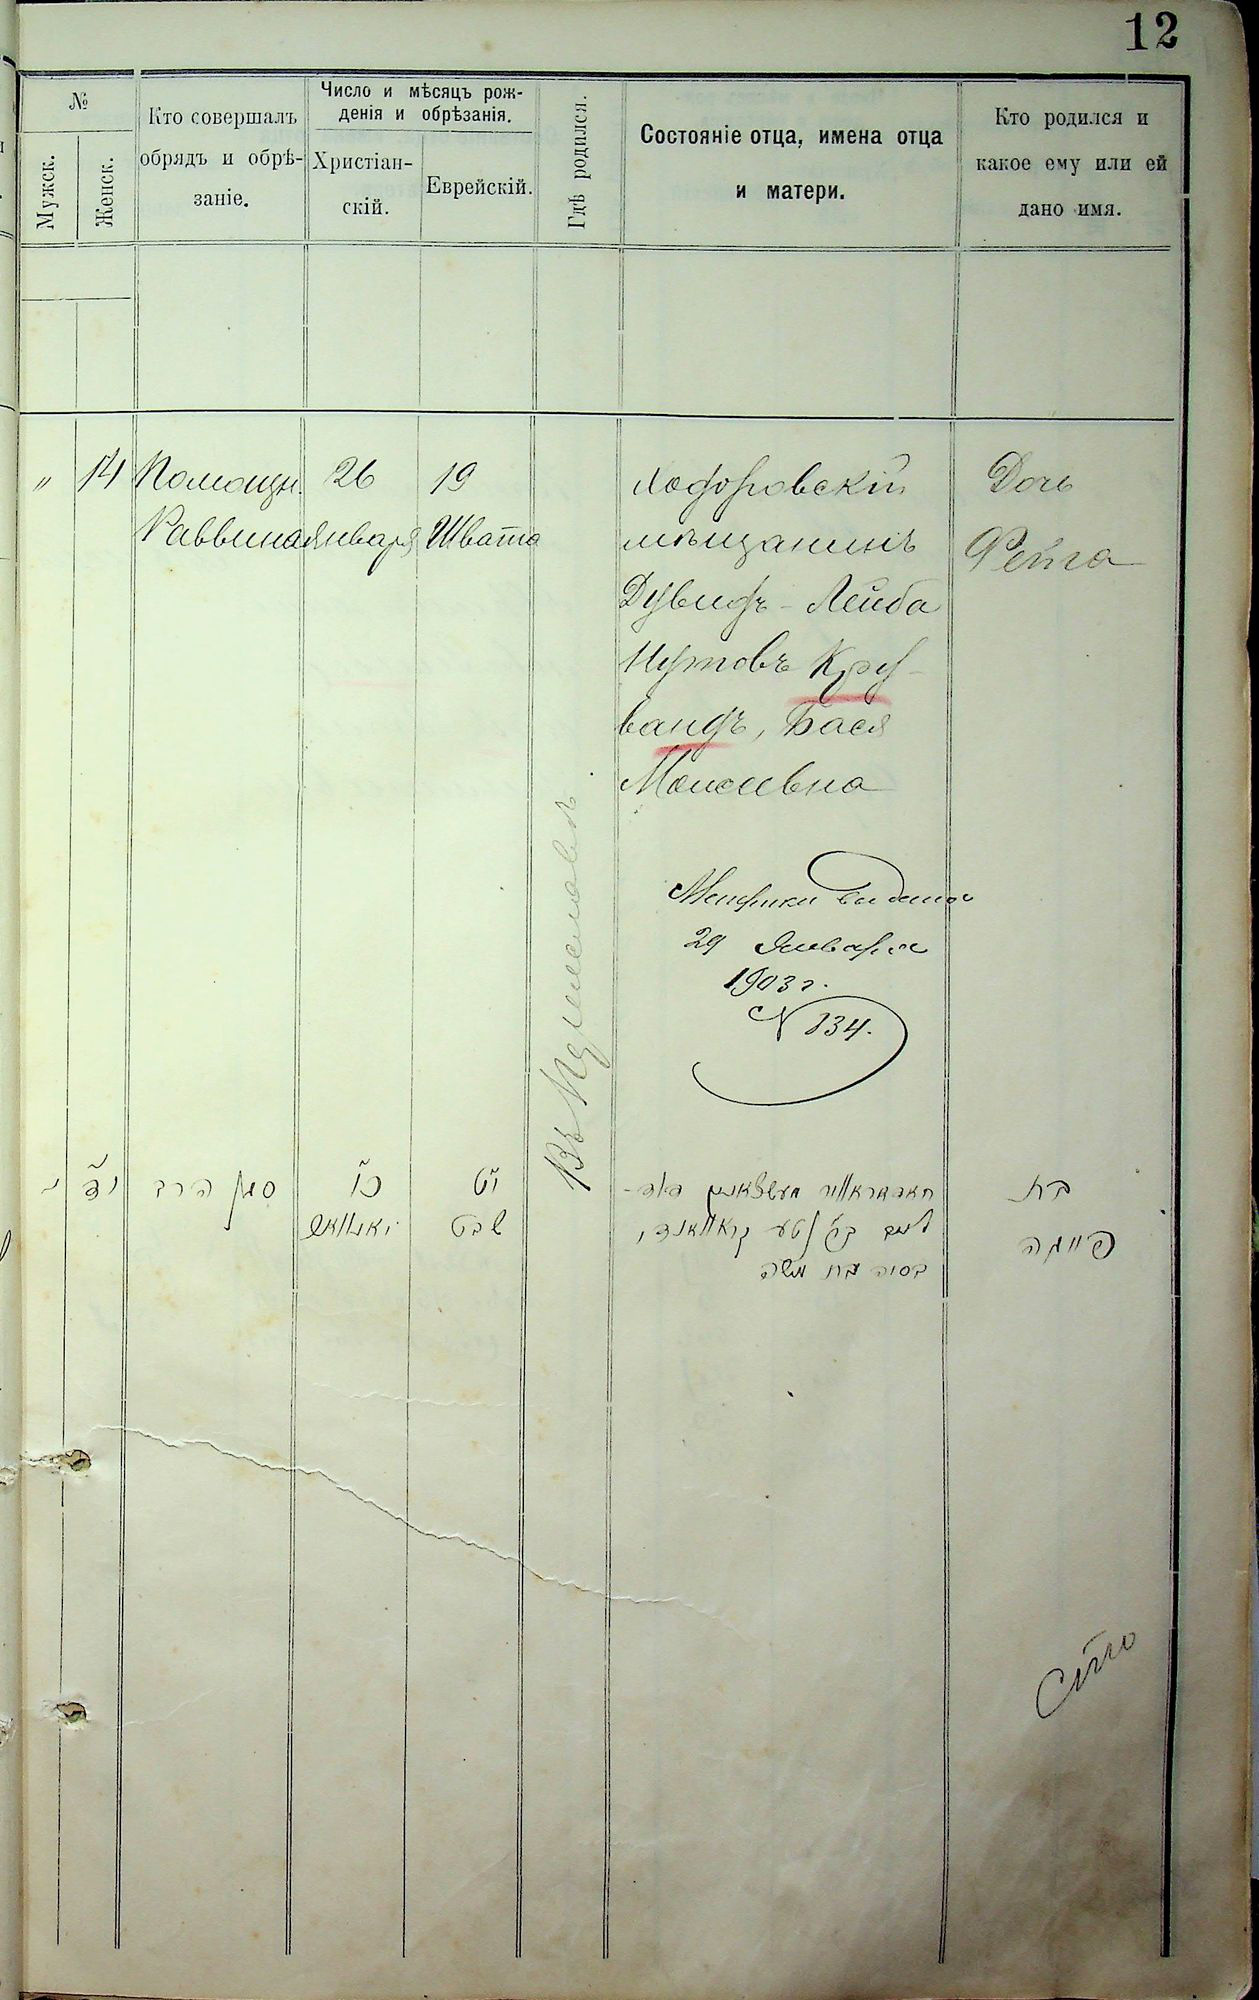 12
№
Мужск.
Женск.
Кто совершалъ
обрядъ и обрѣ-
заніе.
Число и мѣсяцъ рож-
денія и обрѣзанія.
Христіан-
скій.
Еврейскій.
Гдѣ родился.
Состояніе отца, имена отца
и матери.
Кто родился и
какое ему или ей
дано имя.
"
14
Помощн.
Раввина
26
января
19
Швата
Ходоровскій
мѣщанинъ
Дувидъ-Лейба
Нутовъ Кру-
вандъ, Бася
Моисеевна
Дочь
Фейга
Метрики выдана
29 Января
1903 г.
№ 134.
Въ
יד
סגן הרב
כו
יאנואר
יט
שבט
לייב בן נטע
בסיה בת משה
בת
פייגה